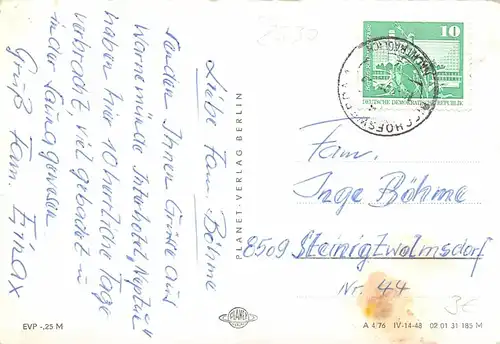 Liebe Fam. Böhme
senden Ihnen Grüße aus
Warnemünde Interhotel „Neptun"
haben hier 10 herrliche Tage
verbracht, viel gebadet u.
in der Sauna gewesen
Gruß Fam.
PLANET-VERLAG BERLIN
10
DEUTSCHE DEMOKRATISCHE REPUBLIK
Fam.
Inge Böhme
8509 Steinigtwolmsdorf
Nr. 44
EVP -,25 M
PLANET
A 4/76 IV-14-48 02 01 31 185 M